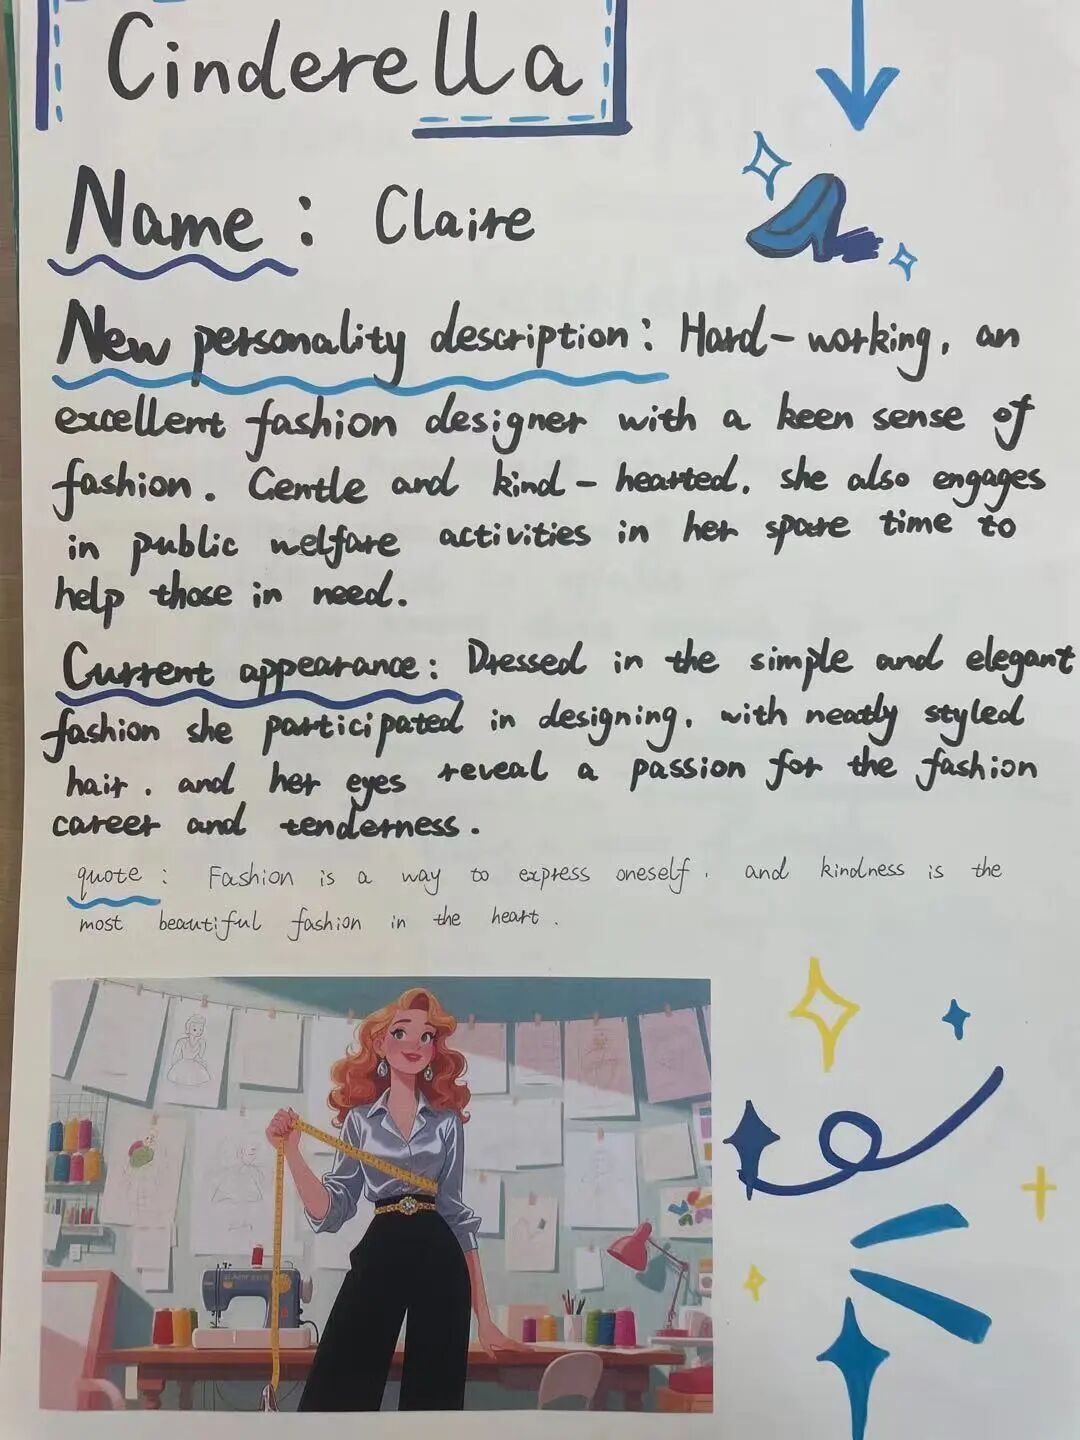 Cinderella
Name : Claire
New personality description : Hard-working, an
excellent fashion designer with a keen sense of
fashion. Gentle and kind-hearted, she also engages
in public welfare activities in her spare time to
help those in need.
Current appearance : Dressed in the simple and elegant
fashion she participated in designing, with neatly styled
hair, and her eyes reveal a passion for the fashion
career and tenderness.
quote : Fashion is a way to express oneself, and kindness is the
most beautiful fashion in the heart.